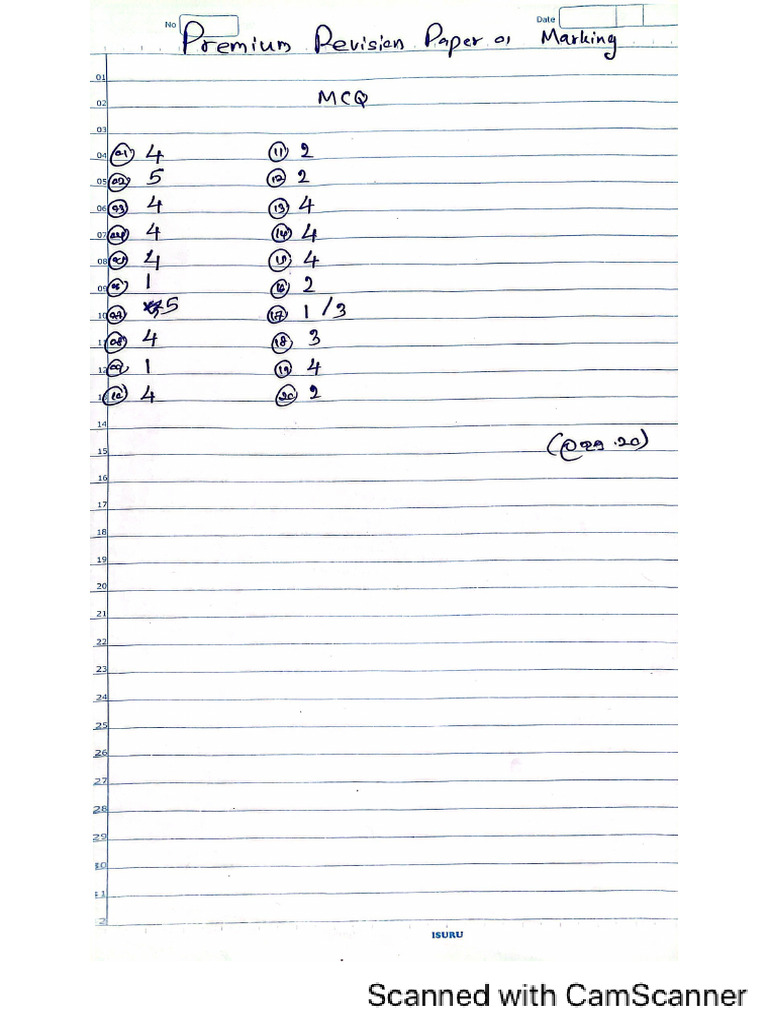 No
Date
Premium Revision Paper 01 Marking
01
02 MCQ
03
04 01 4 11 2
05 02 5 12 2
06 03 4 13 4
07 04 4 14 4
08 05 4 15 4
09 06 1 16 2
10 07 5 17 1/3
11 08 4 18 3
12 09 1 19 4
13 10 4 20 2
14
15 20)
16
17
18
19
20
21
22
23
24
25
26
27
28
29
ISURU
Scanned with CamScanner